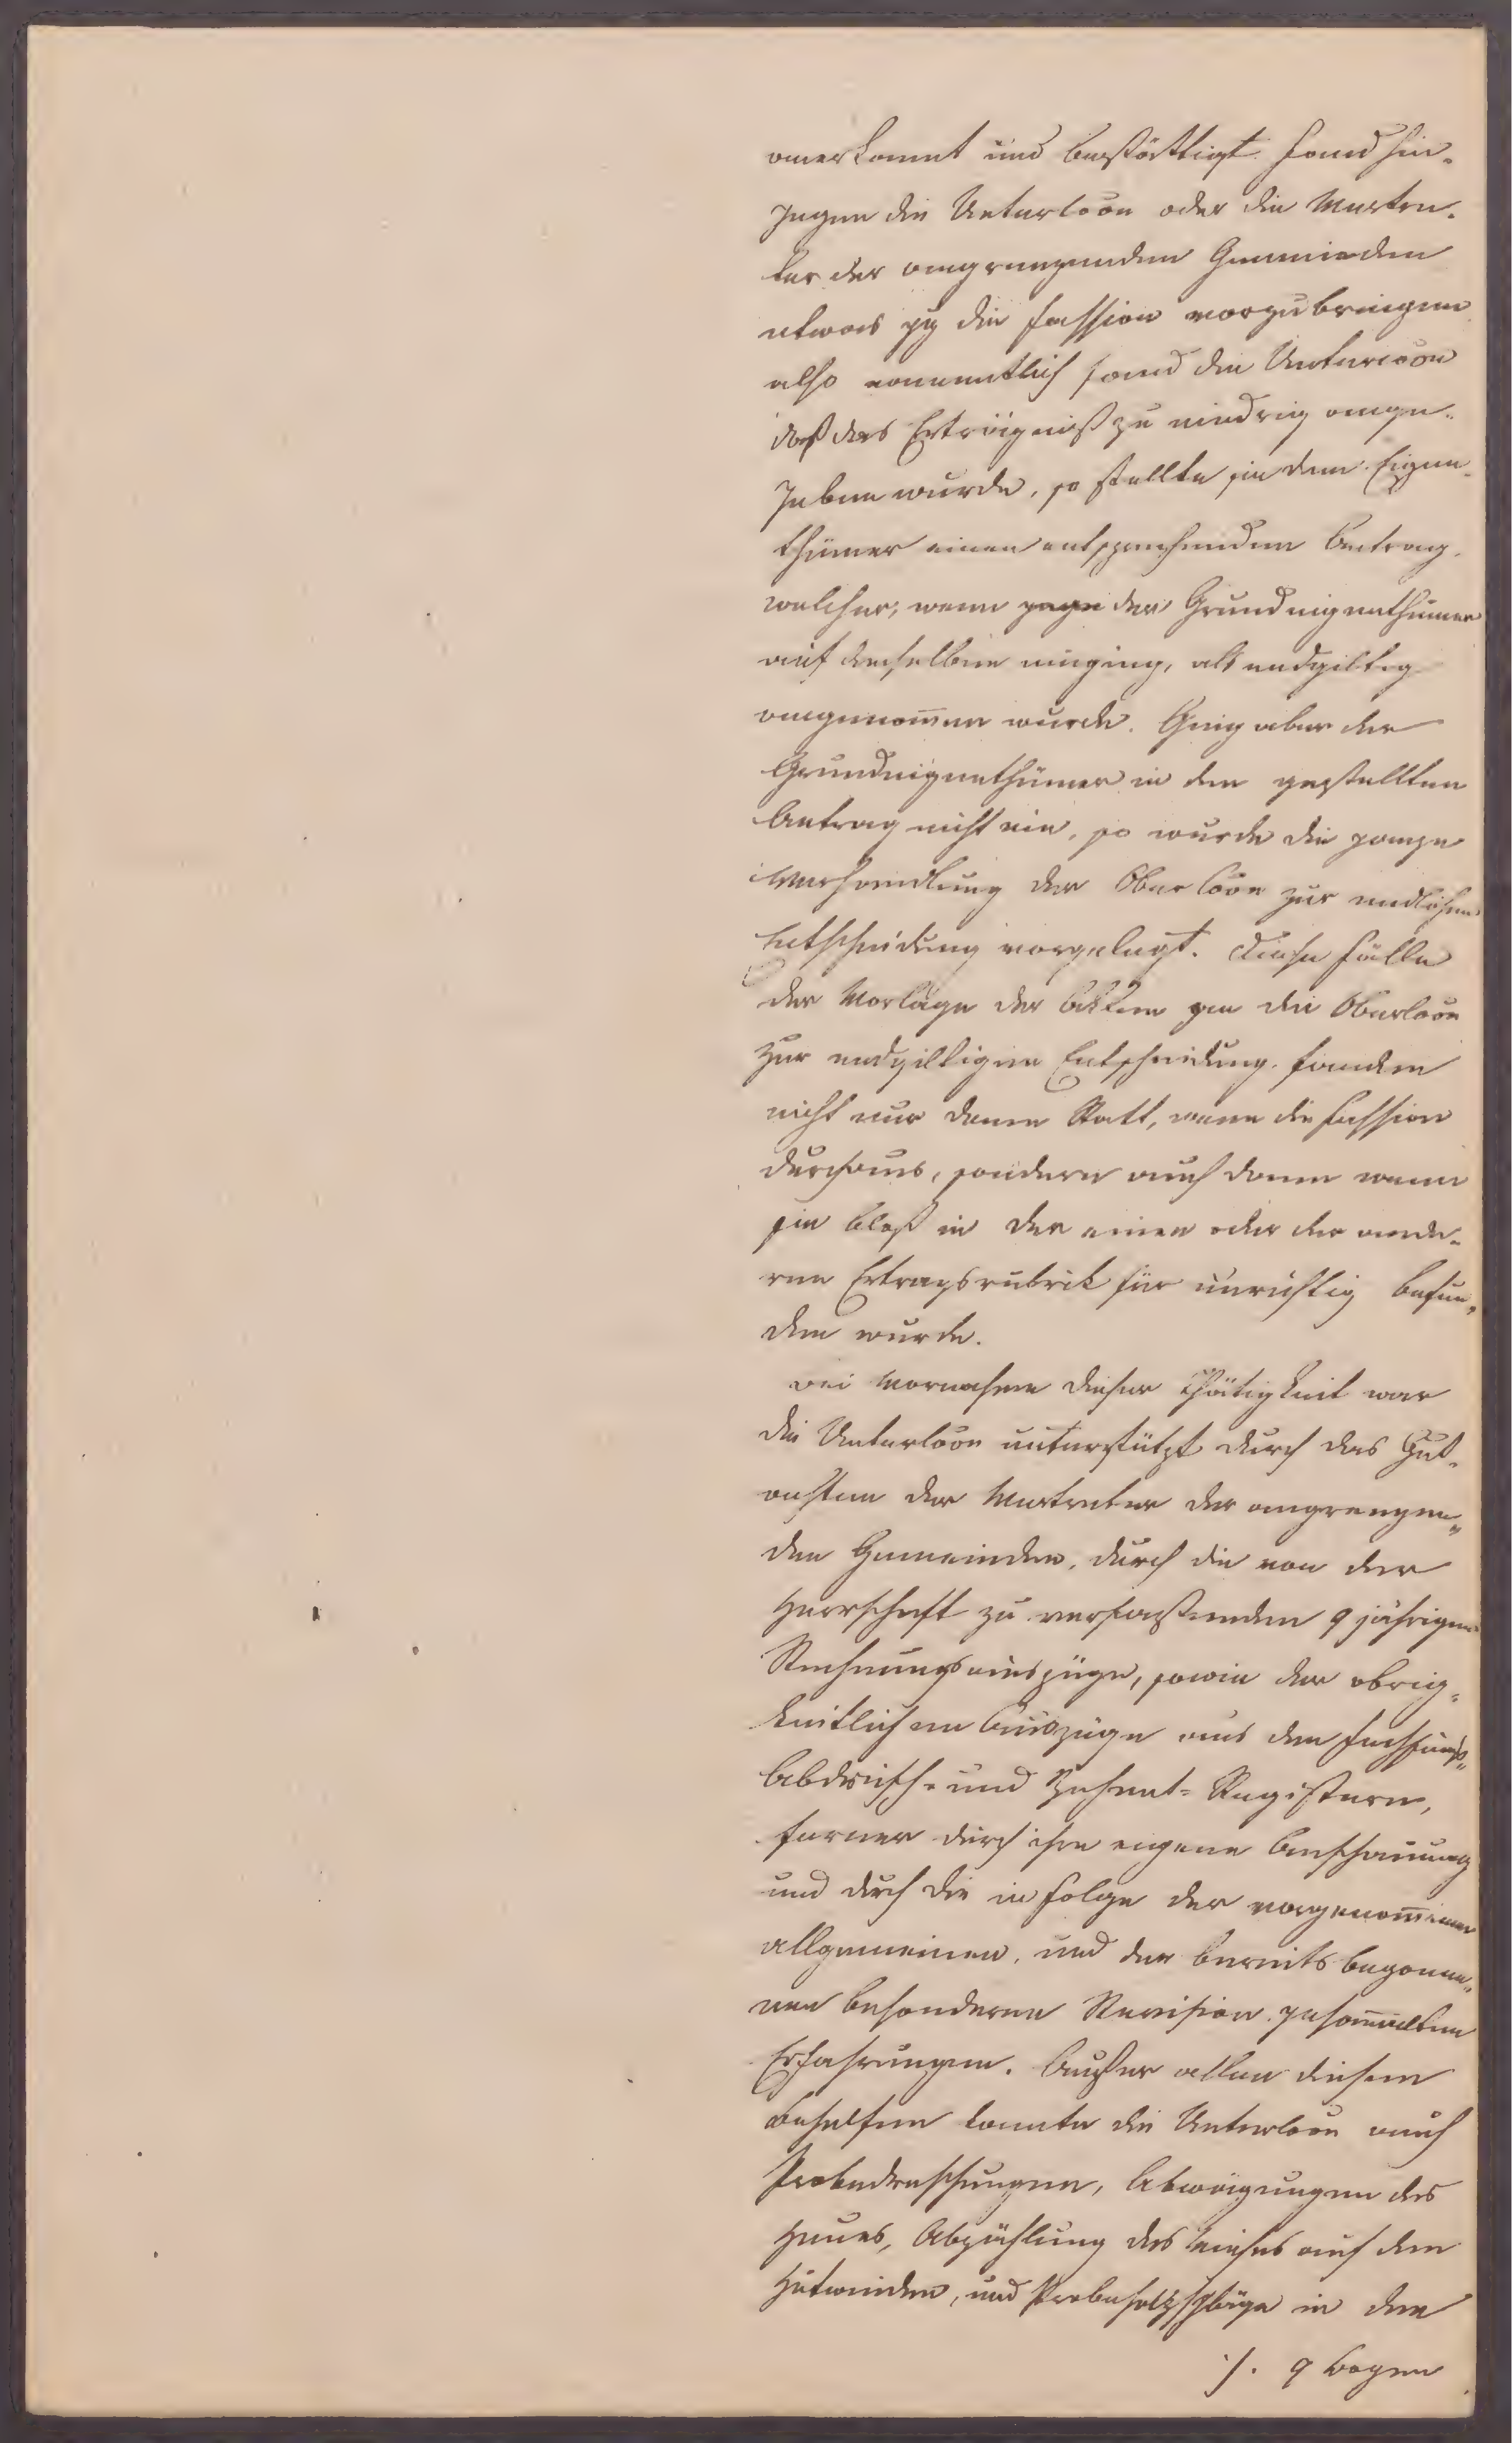 anerkannt und bestättigt. Fand hin-
gegen die Unterloon oder die Vertre-
ter der angrenzenden Gemeinden
etwas gg die Fassion vorzubringen
also namentlich fand die Unterloon
daß das Erträgniß zu niedrig ange-
geben wurde, so stellte sie dem Eigen-
thümer einen entsprechenden Antrag,
welcher, wenn der Grundeigenthümer
auf denselben einging, als endgiltig
angenom̅en wurde. Ging aber der
Grundeigenthümer in den gestellten
Antrag nicht ein, so wurde die ganze
Verhandlung der Oberloon zur endlichen
Entscheidung vorgelegt. Diese Fälle
der Vorlage der Akten an die Oberloon
zur endgiltigen Entscheidung fanden
nicht nur dann Statt, wenn die Fassion
durchaus, sondern auch dann wenn
sie bloß in der einen oder der ande-
ren Ertragsrubrik für unrichtig befun-
den wurde.
Bei Vornahme dieser Thätigkeit war
die Unterloon unterstützt durch das Gut-
achten der Vertreter der angrenzen-
den Gemeinden, durch die von der
Herrschaft zu verfassenden 9 jährigen
Rechnungsauszüge, sowie der obrig-
keitlichen Auszüge aus den Fechsungs-
Abdrusch- und Zehent-Registern,
ferner durch ihre eigene Anschauung
und durch die in Folge der vorgenom̅enen
allgemeinen, und der bereits begonne-
nen besonderen Revision gesam̅elten
Erfahrungen. Außer allen diesen
Behelfen konnte die Unterloon auch
Probedreschungen, Abwägungen des
Heues, Abzählung des Viehes auf den
Hutweiden, und Probeholzschläge in den
./. 9 Bogen